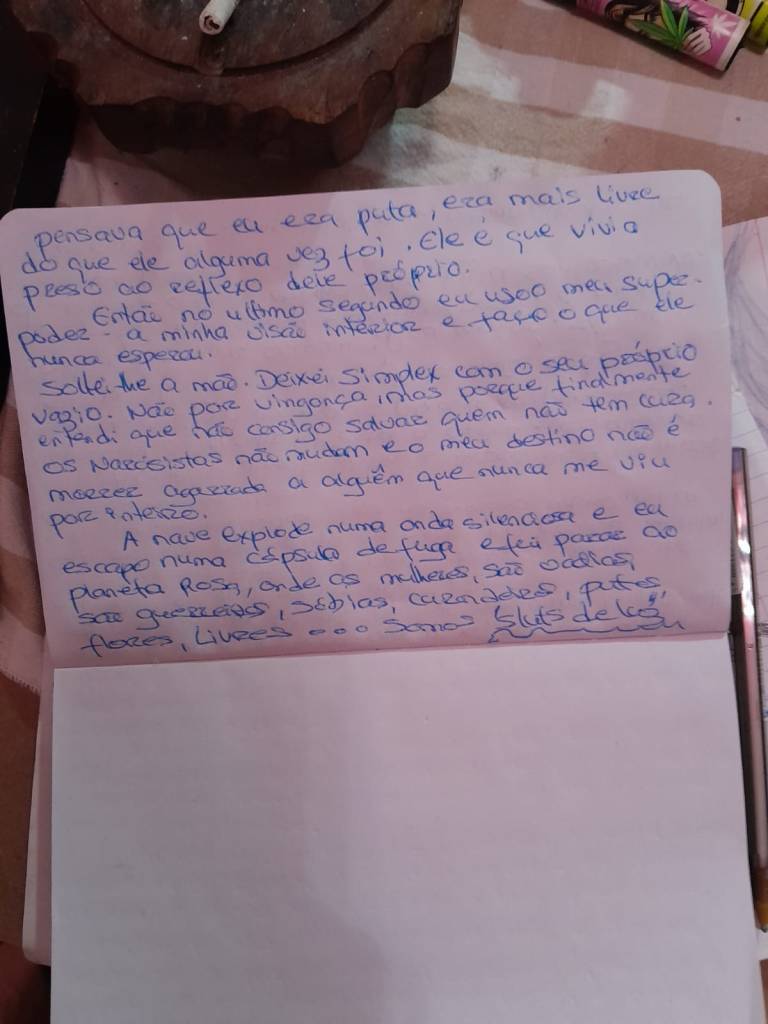 pensava que eu era puta, era mais livre
do que ele alguma vez foi. Ele é que vivia
preso ao reflexo dele próprio.
Então no ultimo segundo eu uso o meu super-
poder - a minha visão interior e faço o que ele
nunca esperou.
Soltei-lhe a mão. Deixei Simplex com o seu próprio
vazio. Não por vingonça mas porque finalmente
entendi que não consigo salvar quem não tem cura.
Os Narcisistas não mudam e o meu destino não é
morrer agarrada a alguêm que nunca me viu
por inteiro.
A nave explode numa onda silenciosa e eu
escapo numa cápsula de fuga e fui parar ao
planeta Rosa, onde as mulheres, são
são guerreiras, sábias, curadoras, putas,
flores, Livres ooo Somos Sluts de